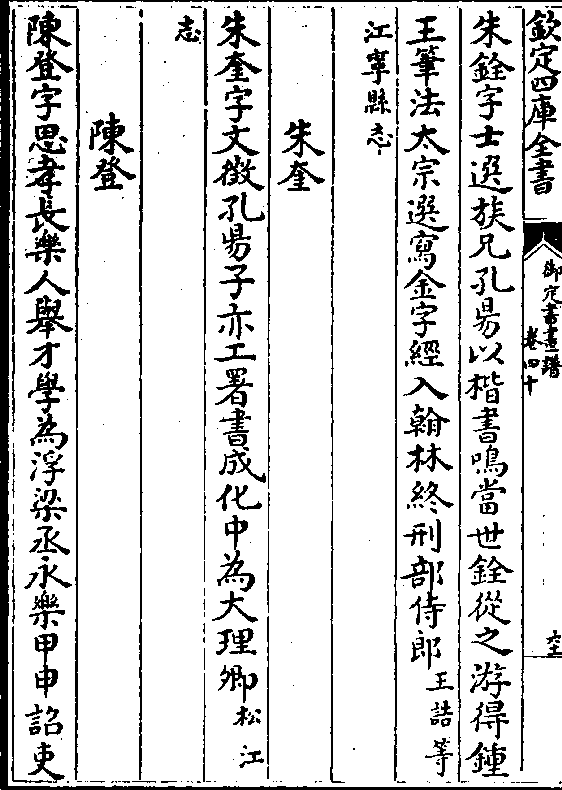 欽定四庫全書
御定書畫譜
卷四十
六十
朱銓字士選族兄孔昜以楷書鳴當世銓從之游得鍾
王筆法太宗選寫金字經入翰林終刑部侍郎王誥等
江寧縣志
朱奎
朱奎字文徵孔昜子亦工署書成化中為大理卿松江
志
陳登
陳登字思孝長樂人舉才學為浮梁丞永樂甲申詔吏